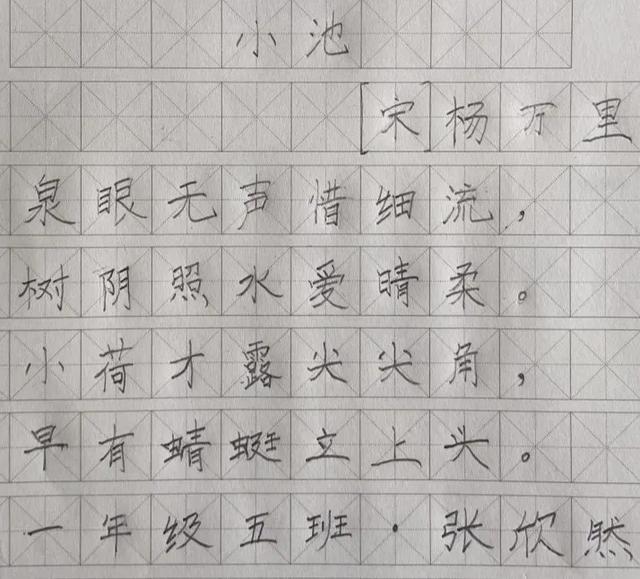 小池
[宋]杨万里
泉眼无声惜细流，
树阴照水爱晴柔。
小荷才露尖尖角，
早有蜻蜓立上头。
一年级五班·张欣然